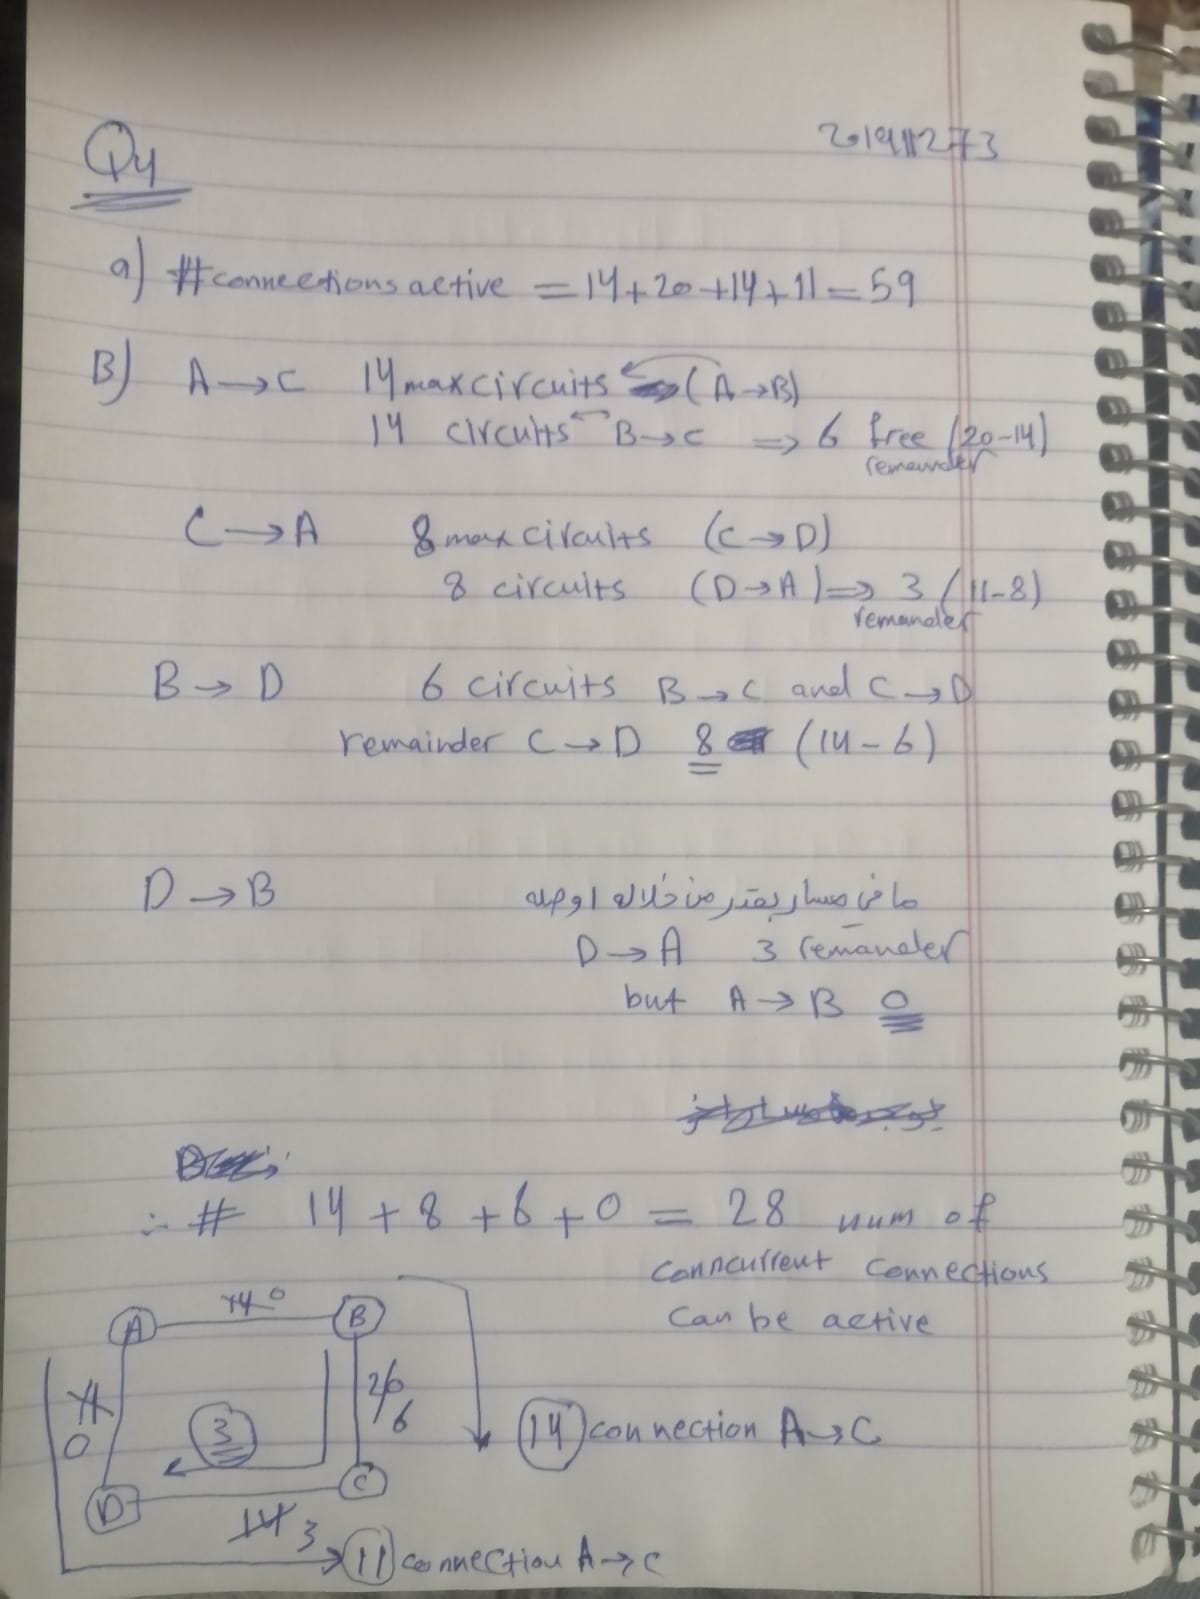 20191273
Q4
a) #connections active = 14+20+14+11 = 59
B) A → C 14 max circuits (A → B)
14 circuits B → C ⇒ 6 free (20-14)
remainder
C → A 8 max circuits (C → D)
8 circuits (D → A) ⇒ 3 (11-8)
remander
B → D 6 circuits B → C and C → D
remainder C → D 8 (14 - 6)
D → B ما في مسار بقدر من خلاله اوصله
D → A 3 remander
but A → B 0
∴ # 14 + 8 + 6 + 0 = 28 num of
conncurrent connections
can be active
A 14 0 B
11 0
20 6
3
14 connection A → C
D C
14 3
11 connection A → C